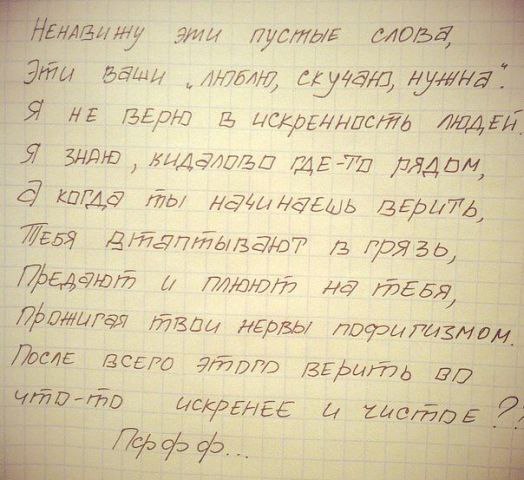 Ненавижу эти пустые слова,
Эти ваши „люблю, скучаю, нужна“.
Я не верю в искренность людей.
Я знаю, кидалово где-то рядом,
А когда ты начинаешь верить,
Тебя втаптывают в грязь,
Предают и плюют на тебя,
Прожигая твои нервы пофигизмом.
После всего этого верить во
что-то искренее и чистое??
Пффф...